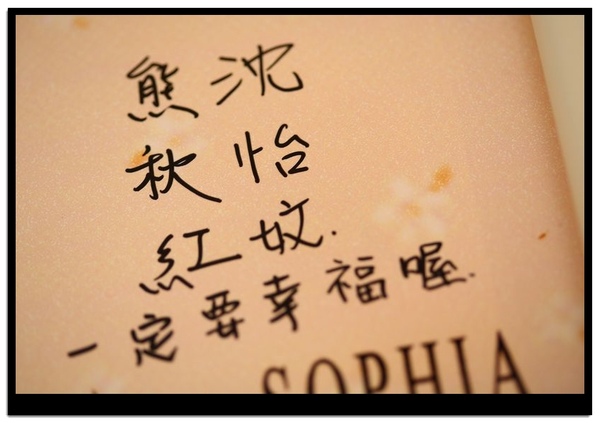 沈怡妏.
熊秋紅
一定要幸福喔.
SOPHIA